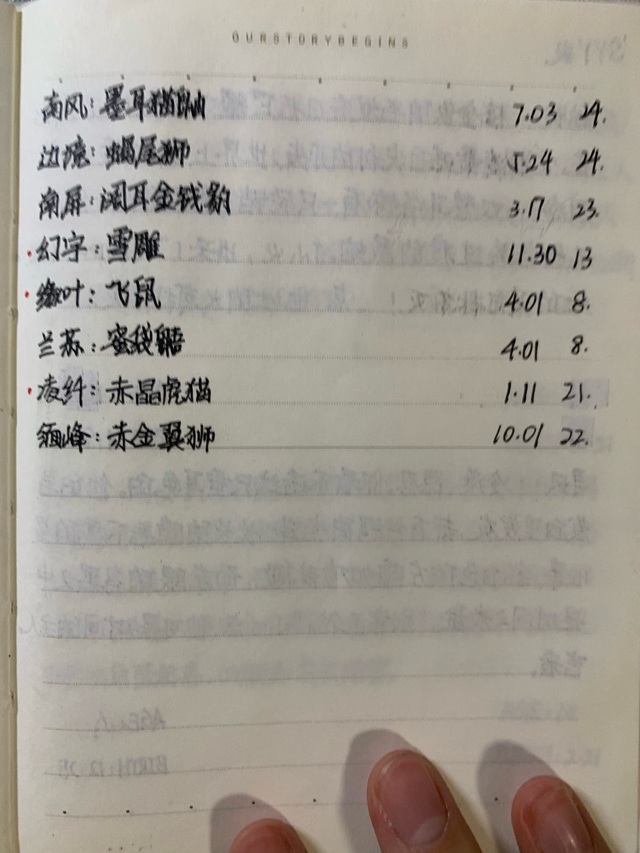 OURSTORYBEGINS
南风：墨耳猫鼬 7.03 24.
边境：蝎尾狮 5.24 24.
南屏：阔耳金钱豹 3.17 23.
幻字：雪雕 11.30 13
缘叶：飞鼠 4.01 8.
兰苏：蜜袋鼯 4.01 8.
凌纤：赤晶虎猫 1.11 21.
缅峰：赤金翼狮 10.01 22.